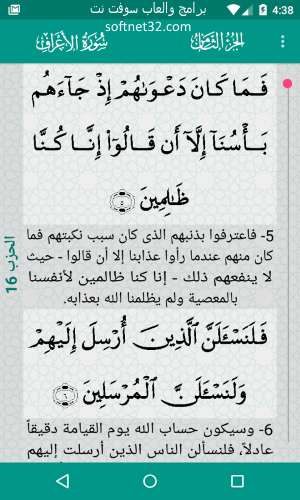 برامج والعاب سوفت نت
4:38
softnet32.com
سُورَةُ الأَعْرَافِ
الجُزْءُ الثَّامِنُ
فَمَا كَانَ دَعْوَىٰهُمْ إِذْ جَآءَهُم
بَأْسُنَآ إِلَّآ أَن قَالُوٓا۟ إِنَّا كُنَّا
ظَٰلِمِينَ ٥
5- فاعترفوا بذنبهم الذى كان سبب نكبتهم فما
كان منهم عندما رأوا عذابنا إلا أن قالوا - حيث
لا ينفعهم ذلك - إنا كنا ظالمين لأنفسنا
بالمعصية ولم يظلمنا الله بعذابه.
فَلَنَسْـَٔلَنَّ ٱلَّذِينَ أُرْسِلَ إِلَيْهِمْ
وَلَنَسْـَٔلَنَّ ٱلْمُرْسَلِينَ ٦
6- وسيكون حساب الله يوم القيامة دقيقاً
عادلاً، فلنسألن الناس الذين أرسلت إليهم
الحزب 16